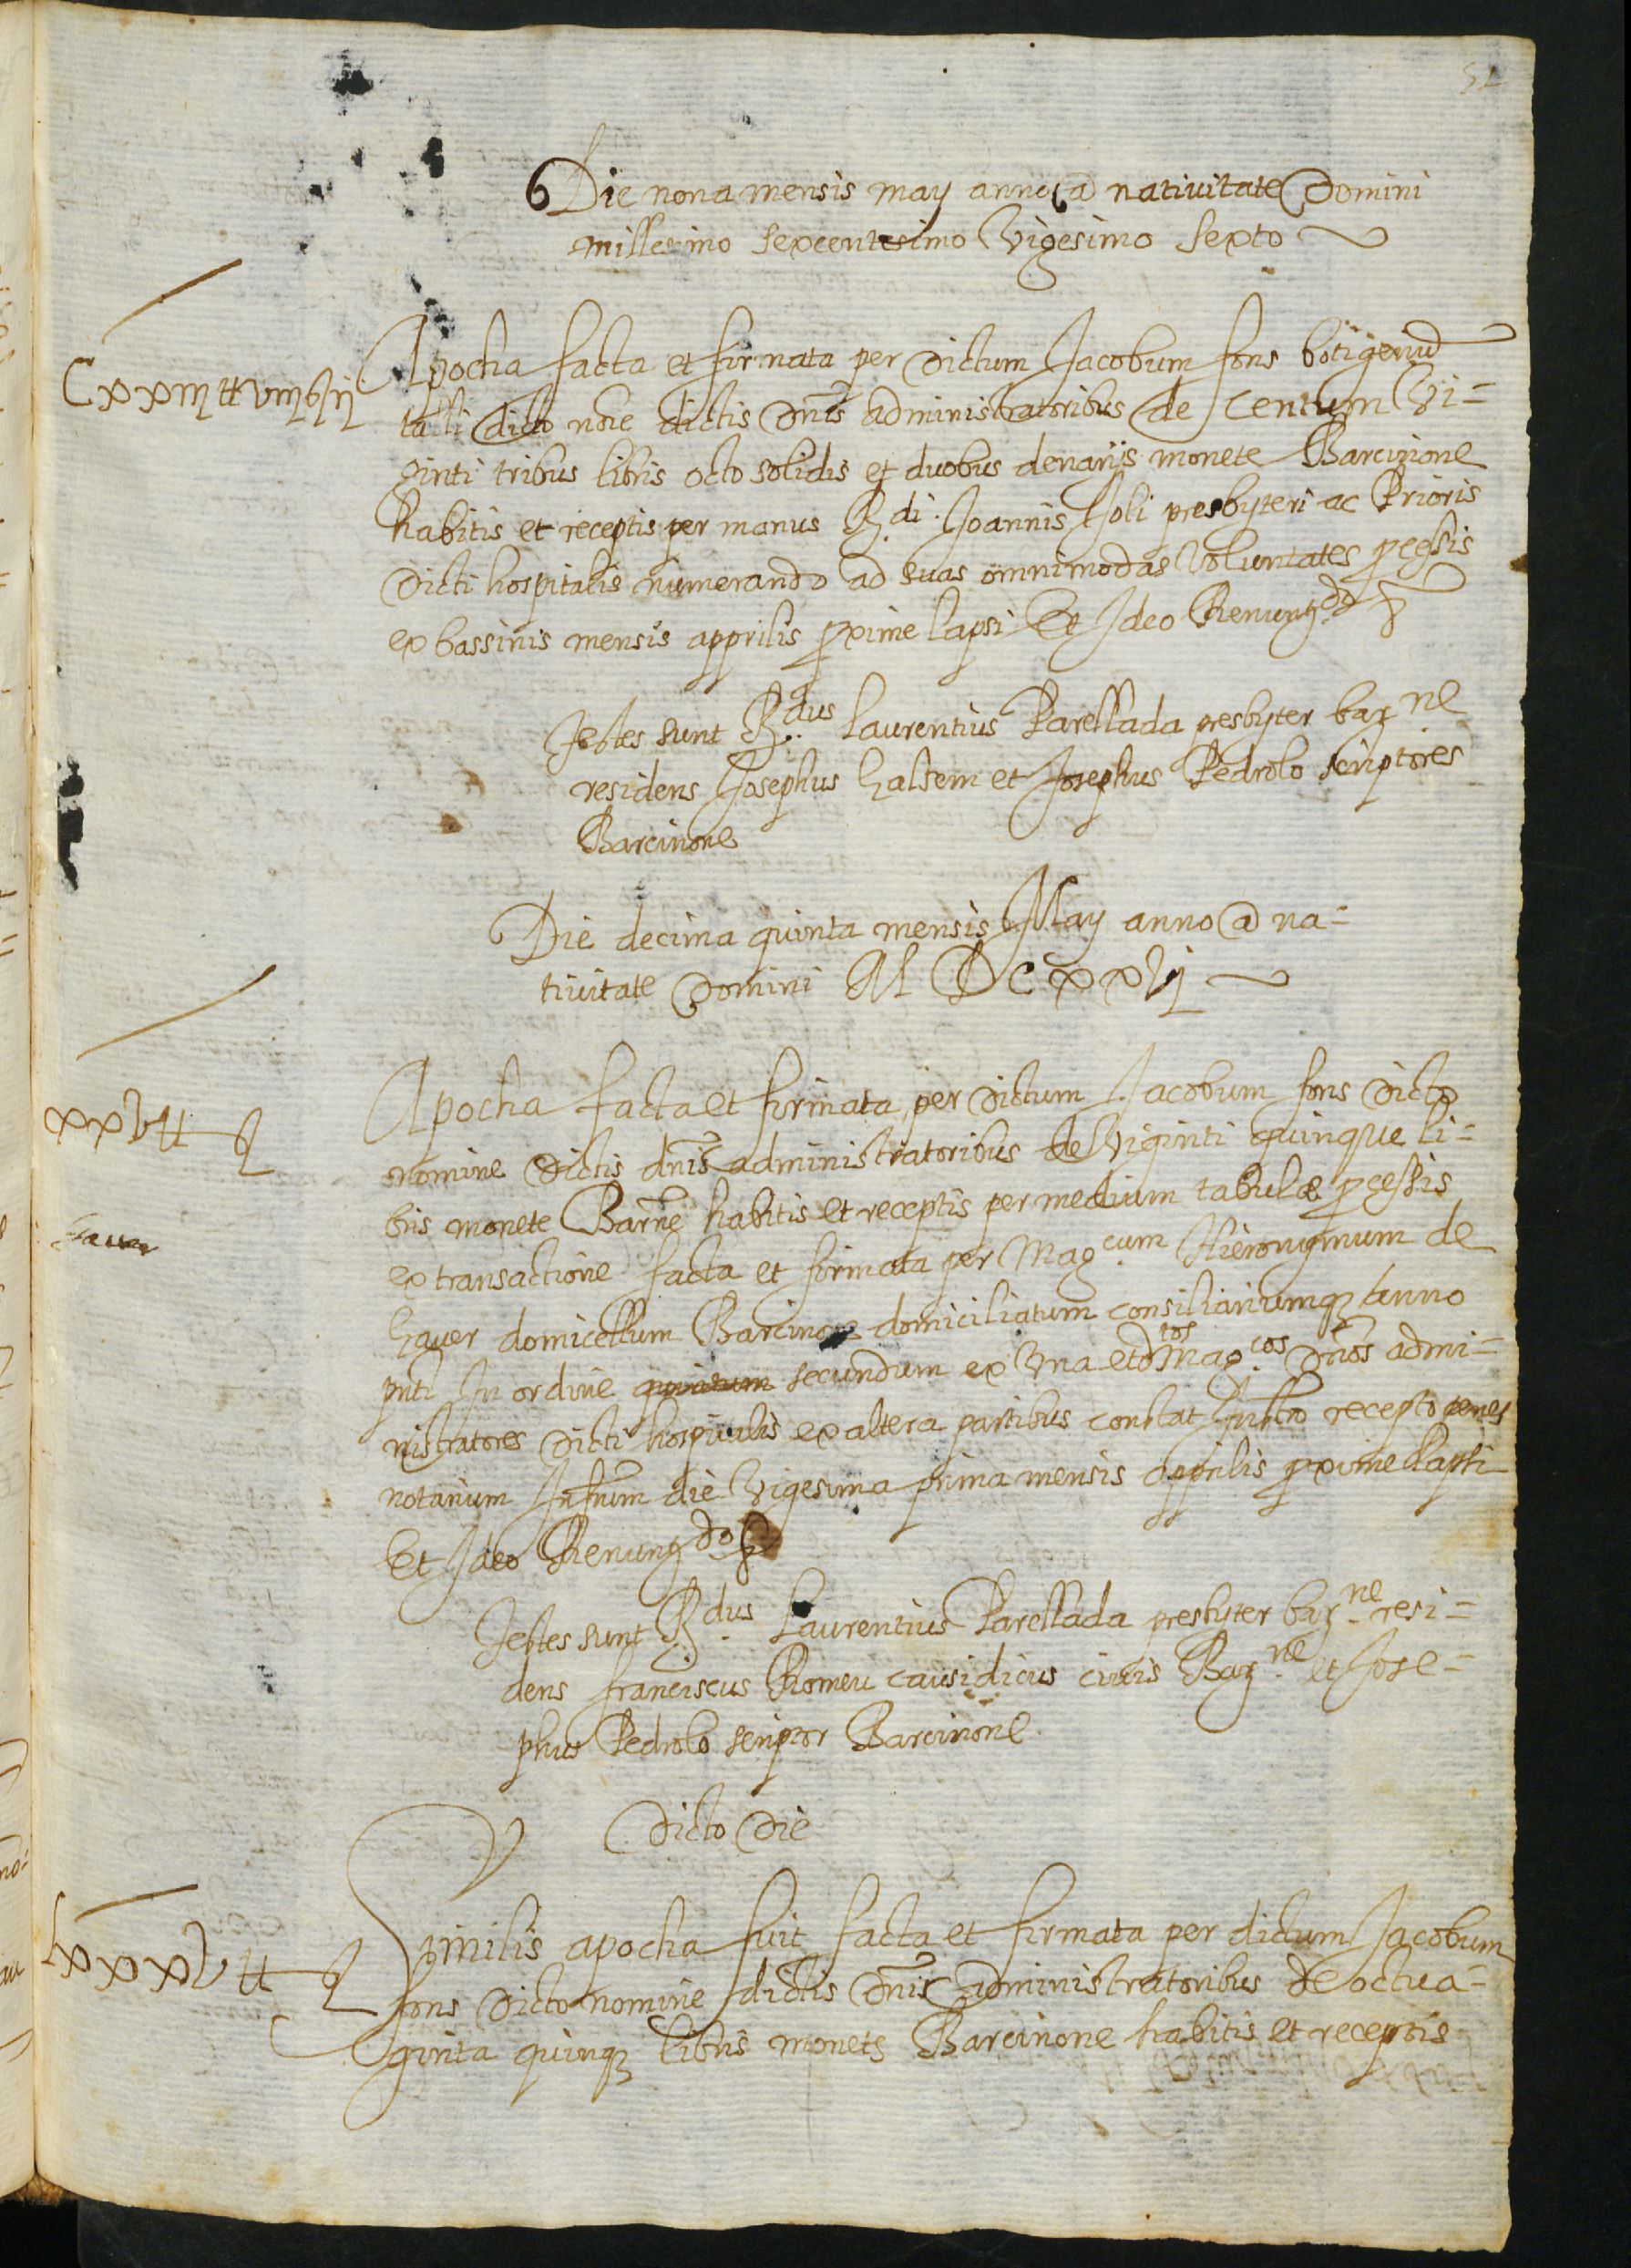 51
6 Die nona mensis may anno @ natiuitate Domini
millesimo sexcentesimo Vigesimo sexto
Cxxiij tt viij s ij
Apocha facta et firmata per dictum Jacobum fons botigerium
tali dicto noie dictis dnis administratoribus de Centum Vi=
ginti tribus libris octo solidis et duobus denarijs monete Barcinone
habitis et receptis per manus R.di Joannis Soli presbyteri ac Prioris
dicti hospitalis numerando ad suas omnimodas Voluntates pcessis
ex bassinis mensis apprilis pxime lapsi Et Ideo Renung.do &
Testes sunt R.dus Laurentius Parellada presbyter bar.ne
residens Josephus Galsem et Josephus Pedrolo scriptores
Barcinone
Die decima quinta mensis May anno @ na=
tiuitate Domini M DCxxvj
xxv tt
Apocha facta et firmata per dictum Jacobum fons dicto
nomine dictis dnis administratoribus de Viginti quinque li=
bris monete Barne habitis et receptis per medium tabulæ pcessis
ex transactione facta et firmata per Mag.cum Hieronymum de
Gauer domicellum Barcinone domiciliatum consiliariumq anno
pnti In ordine quintum secundum ex Vna et dtos Mag.cos dnos admi=
nistratores dicti hospitalis ex altera partibus constat Instro recepto penes
notarium Infrum die Vigesima prima mensis apprilis pxime lapsi
Et Ideo Renung.do &
Gauer
Testes sunt R.dus Laurentius Parellada presbyter bar.ne resi=
dens franciscus Romeu causidicus ciuis Bar.ne et Jose=
phus Pedrolo scriptor Barcinone
Dicto Die
Lxxxv tt
Similis apocha fuit facta et firmata per dictum Jacobum
fons dicto nomine dictis dnis administratoribus de octua=
ginta quinq libris monete Barcinone habitis et receptis